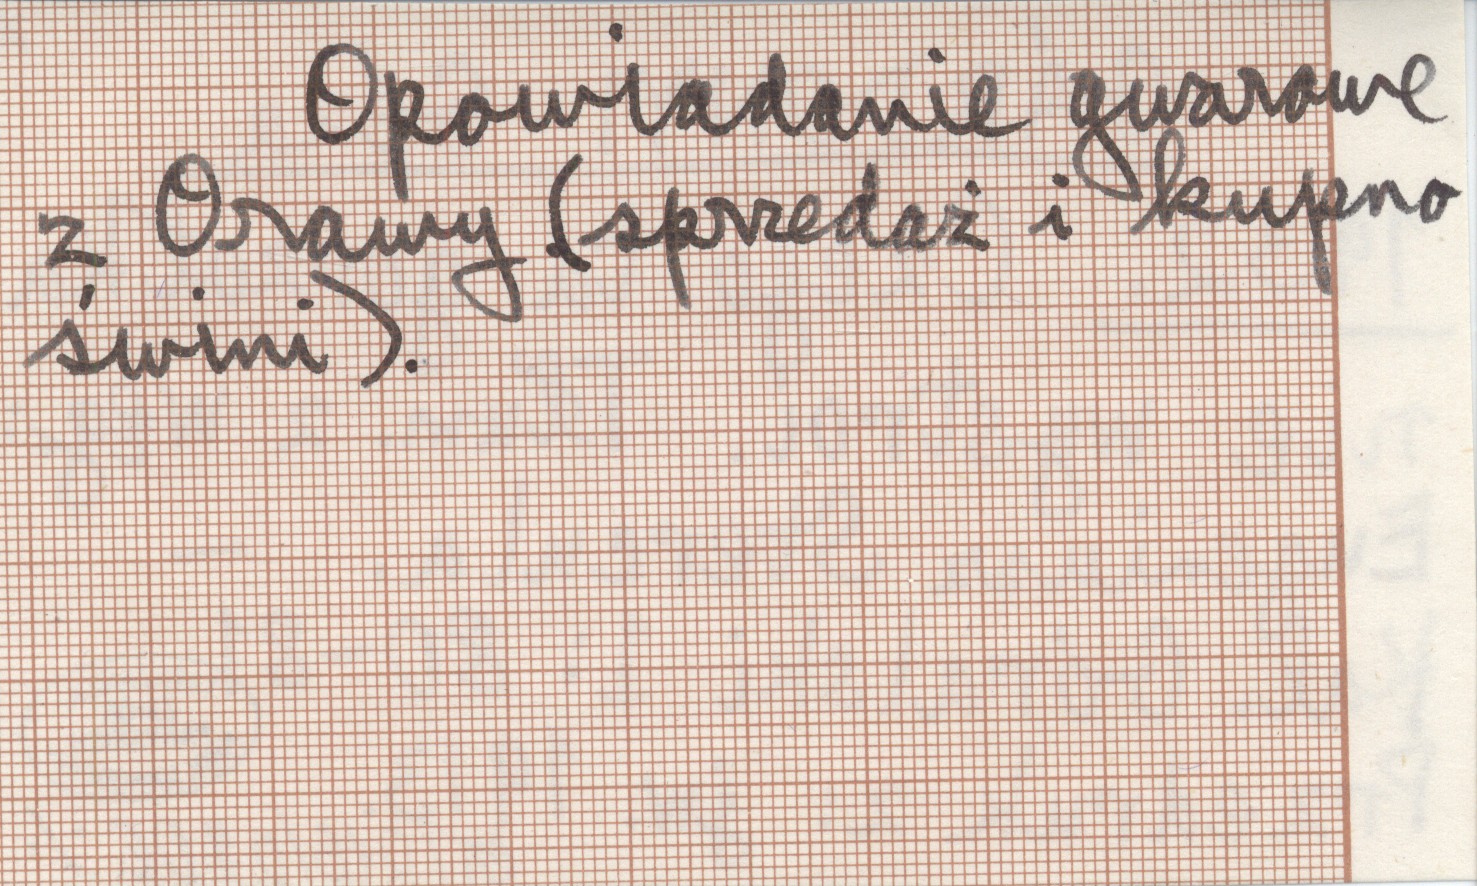 Opowiadanie gwarowe
z Orawy (sprzedaż i kupno
świni).